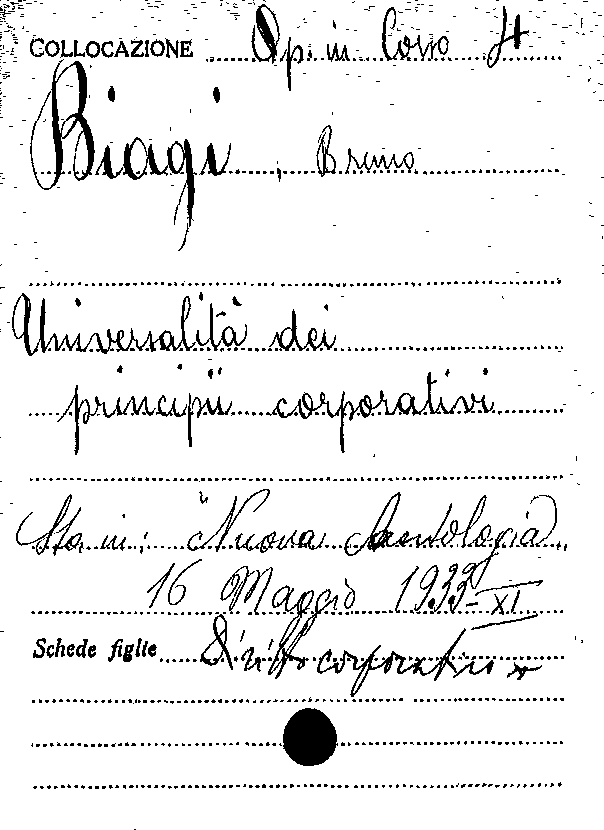 COLLOCAZIONE Op. in Corso H
Biagi, Bruno
Universalità dei
principii corporativi
Sta in: "Nuova Antologia"
16 Maggio 1933-XI
Schede figlie Diritto corporativo